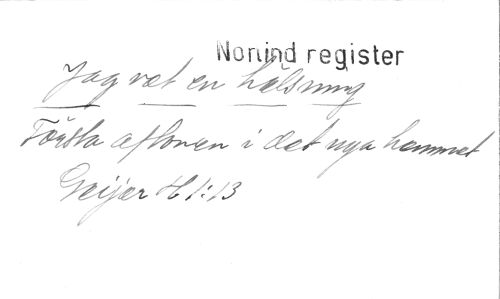 Norlind register
Jag vet en hälsning
Första aftonen i det nya hemmet
Geijer H 1:13